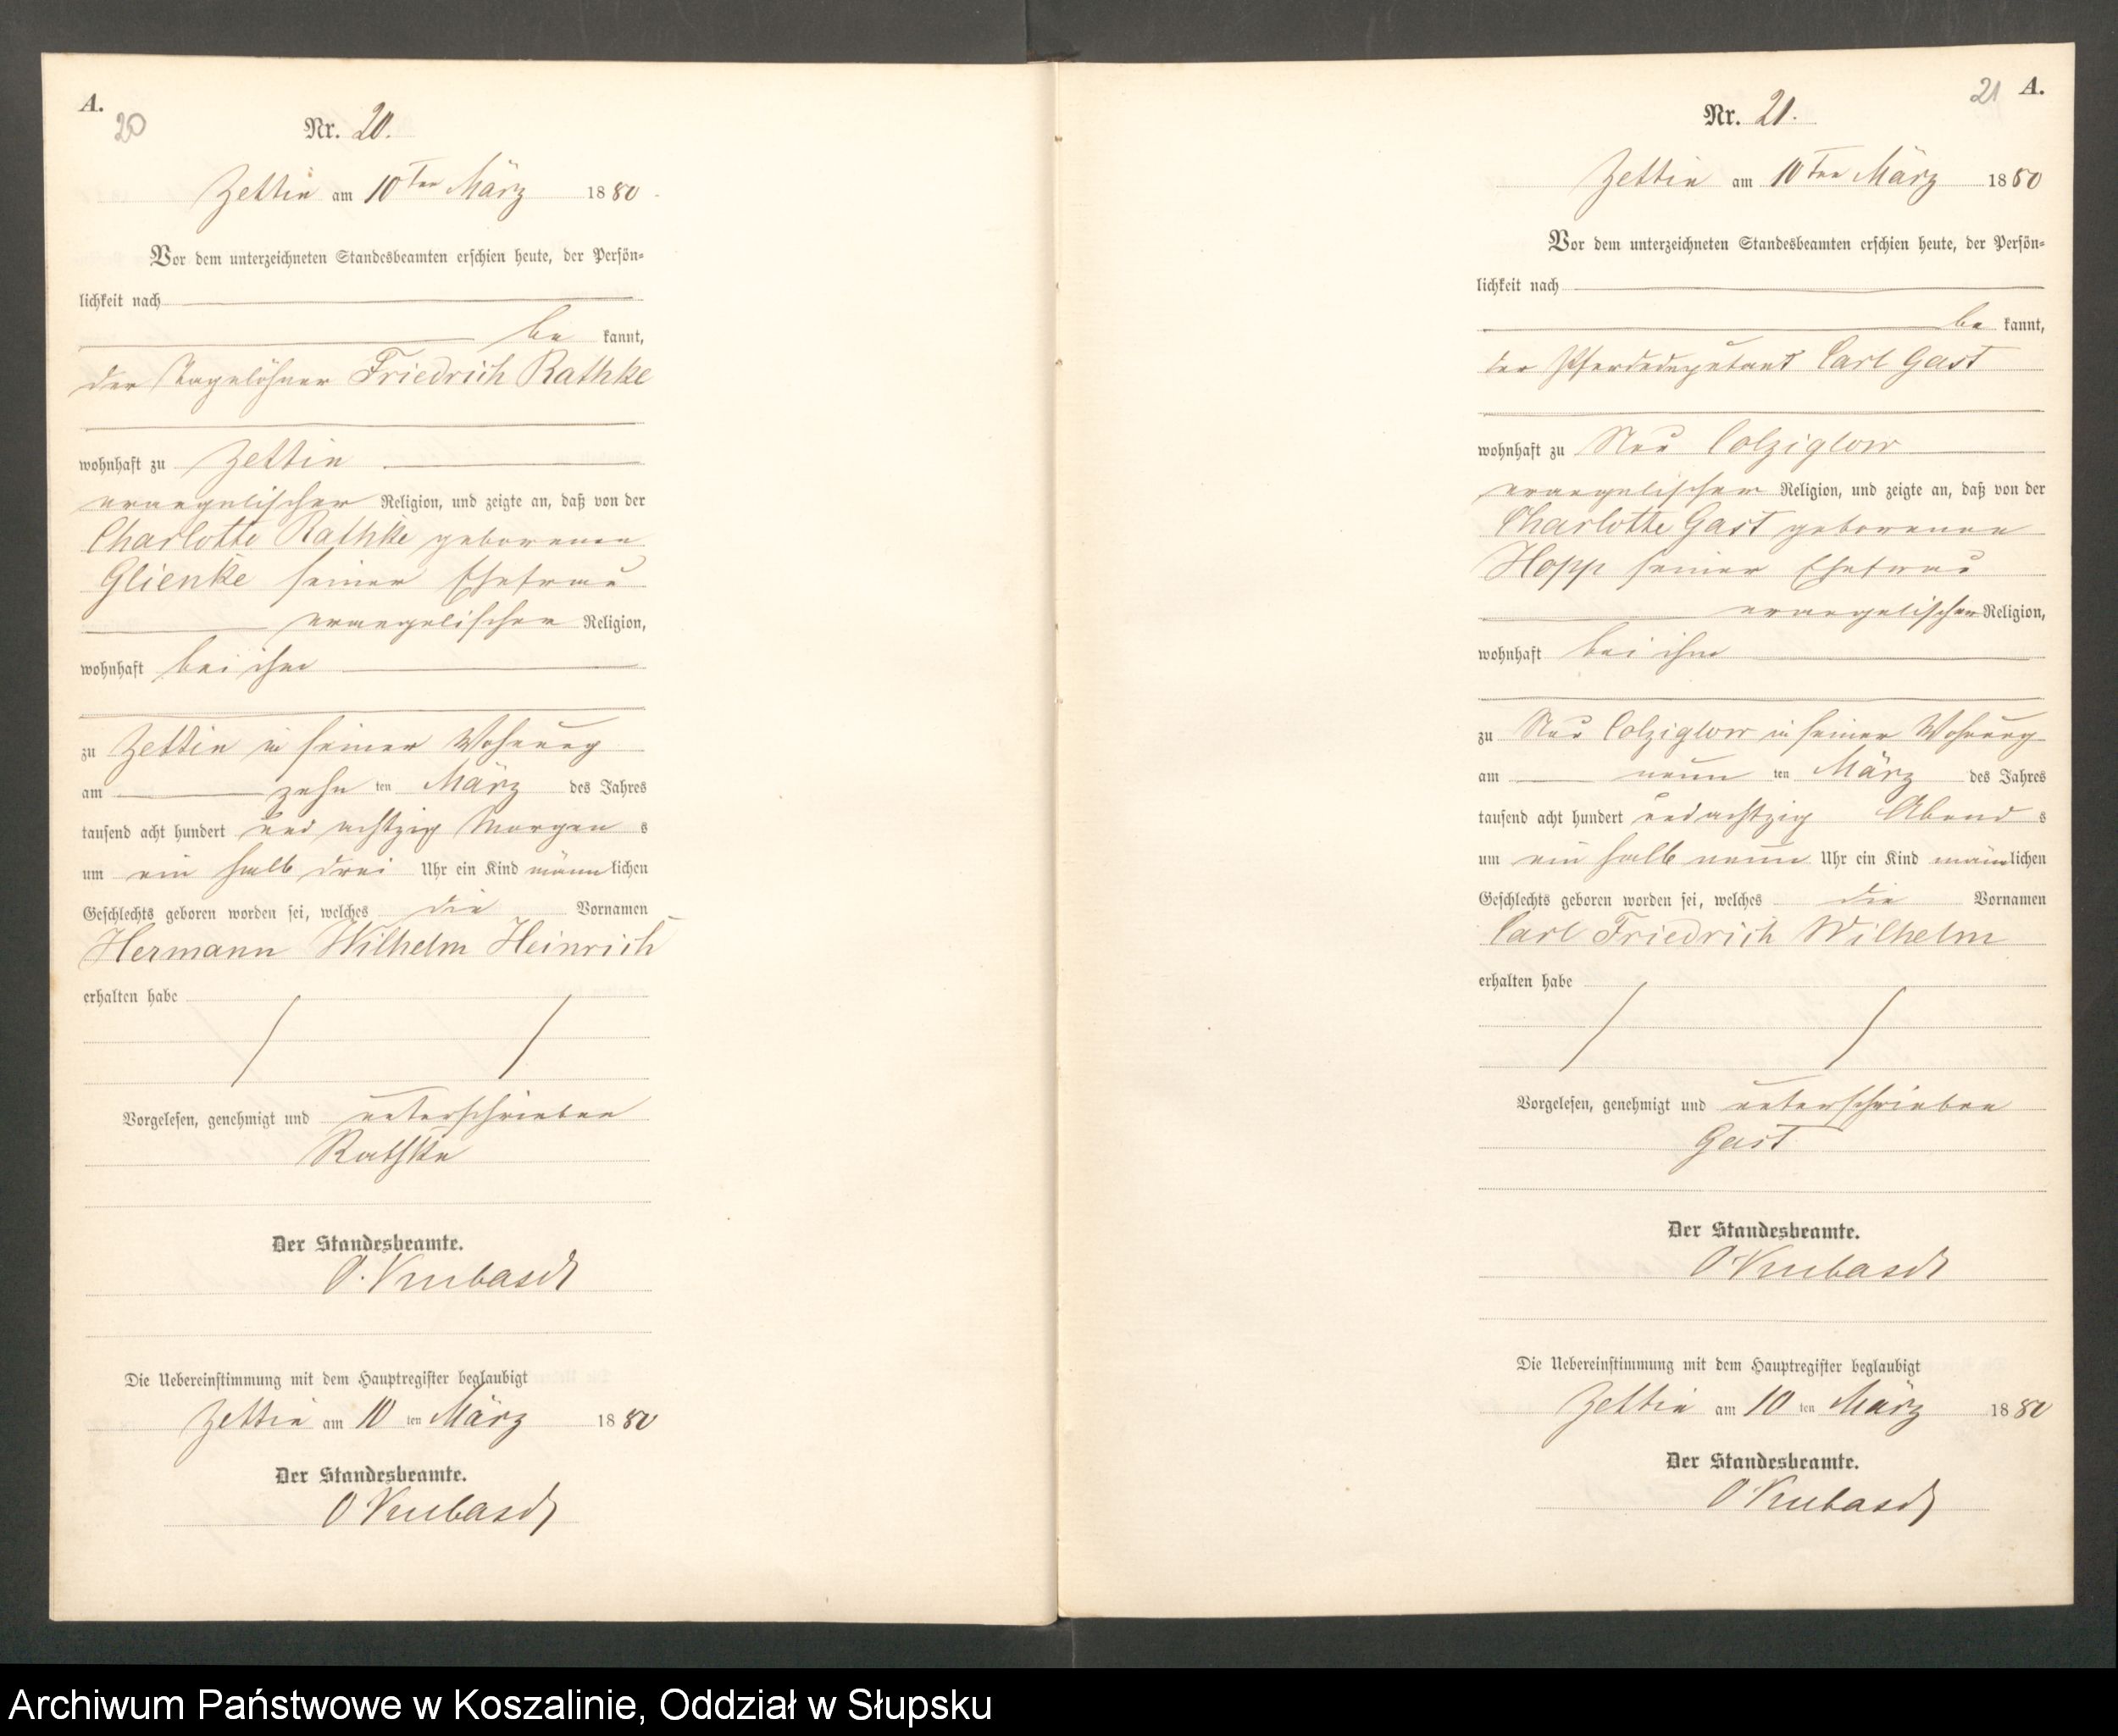 A.
20
Nr. 20.
Zettin am 10ten März 1880.
Vor dem unterzeichneten Standesbeamten erschien heute, der Persön-
lichkeit nach
be kannt,
der Tagelöhner Friedrich Rathke
wohnhaft zu Zettin
evangelischer Religion, und zeigte an, daß von der
Charlotte Rathke geborenen
Glienke seiner Ehefrau
evangelischer Religion,
wohnhaft bei ihm
zu Zettin in seiner Wohnung
am zehn ten März des Jahres
tausend acht hundert und achtzig Morgen s
um ein halb drei Uhr ein Kind männlichen
Geschlechts geboren worden sei, welches die Vornamen
Hermann Wilhelm Heinrich
erhalten habe
Vorgelesen, genehmigt und unterschrieben
Rathke
Der Standesbeamte.
O.
Die Uebereinstimmung mit dem Hauptregister beglaubigt
Zettin am 10 ten März 1880
Der Standesbeamte.
O
21 A.
Nr. 21.
Zettin am 10ten März 1880
Vor dem unterzeichneten Standesbeamten erschien heute, der Persön-
lichkeit nach
be kannt,
der Pferdedeputant Carl Gast
wohnhaft zu Neu Colziglow
evangelischer Religion, und zeigte an, daß von der
Charlotte Gast geborenen
Hopp seiner Ehefrau
evangelischer Religion,
wohnhaft bei ihm
zu Neu Colziglow in seiner Wohnung
am neun ten März des Jahres
tausend acht hundert und achtzig Abend s
um ein halb neun Uhr ein Kind männlichen
Geschlechts geboren worden sei, welches die Vornamen
Carl Friedrich Wilhelm
erhalten habe
Vorgelesen, genehmigt und unterschrieben
Gast
Der Standesbeamte.
O
Die Uebereinstimmung mit dem Hauptregister beglaubigt
Zettin am 10 ten März 1880
Der Standesbeamte.
O
Archiwum Państwowe w Koszalinie, Oddział w Słupsku